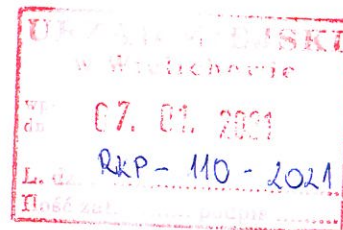 URZĄD MIEJSKI
w Wielichowie
wpł.
dn. 07. 01. 2021
L. dz. RKP - 110 - 2021
Ilość zał. podpis